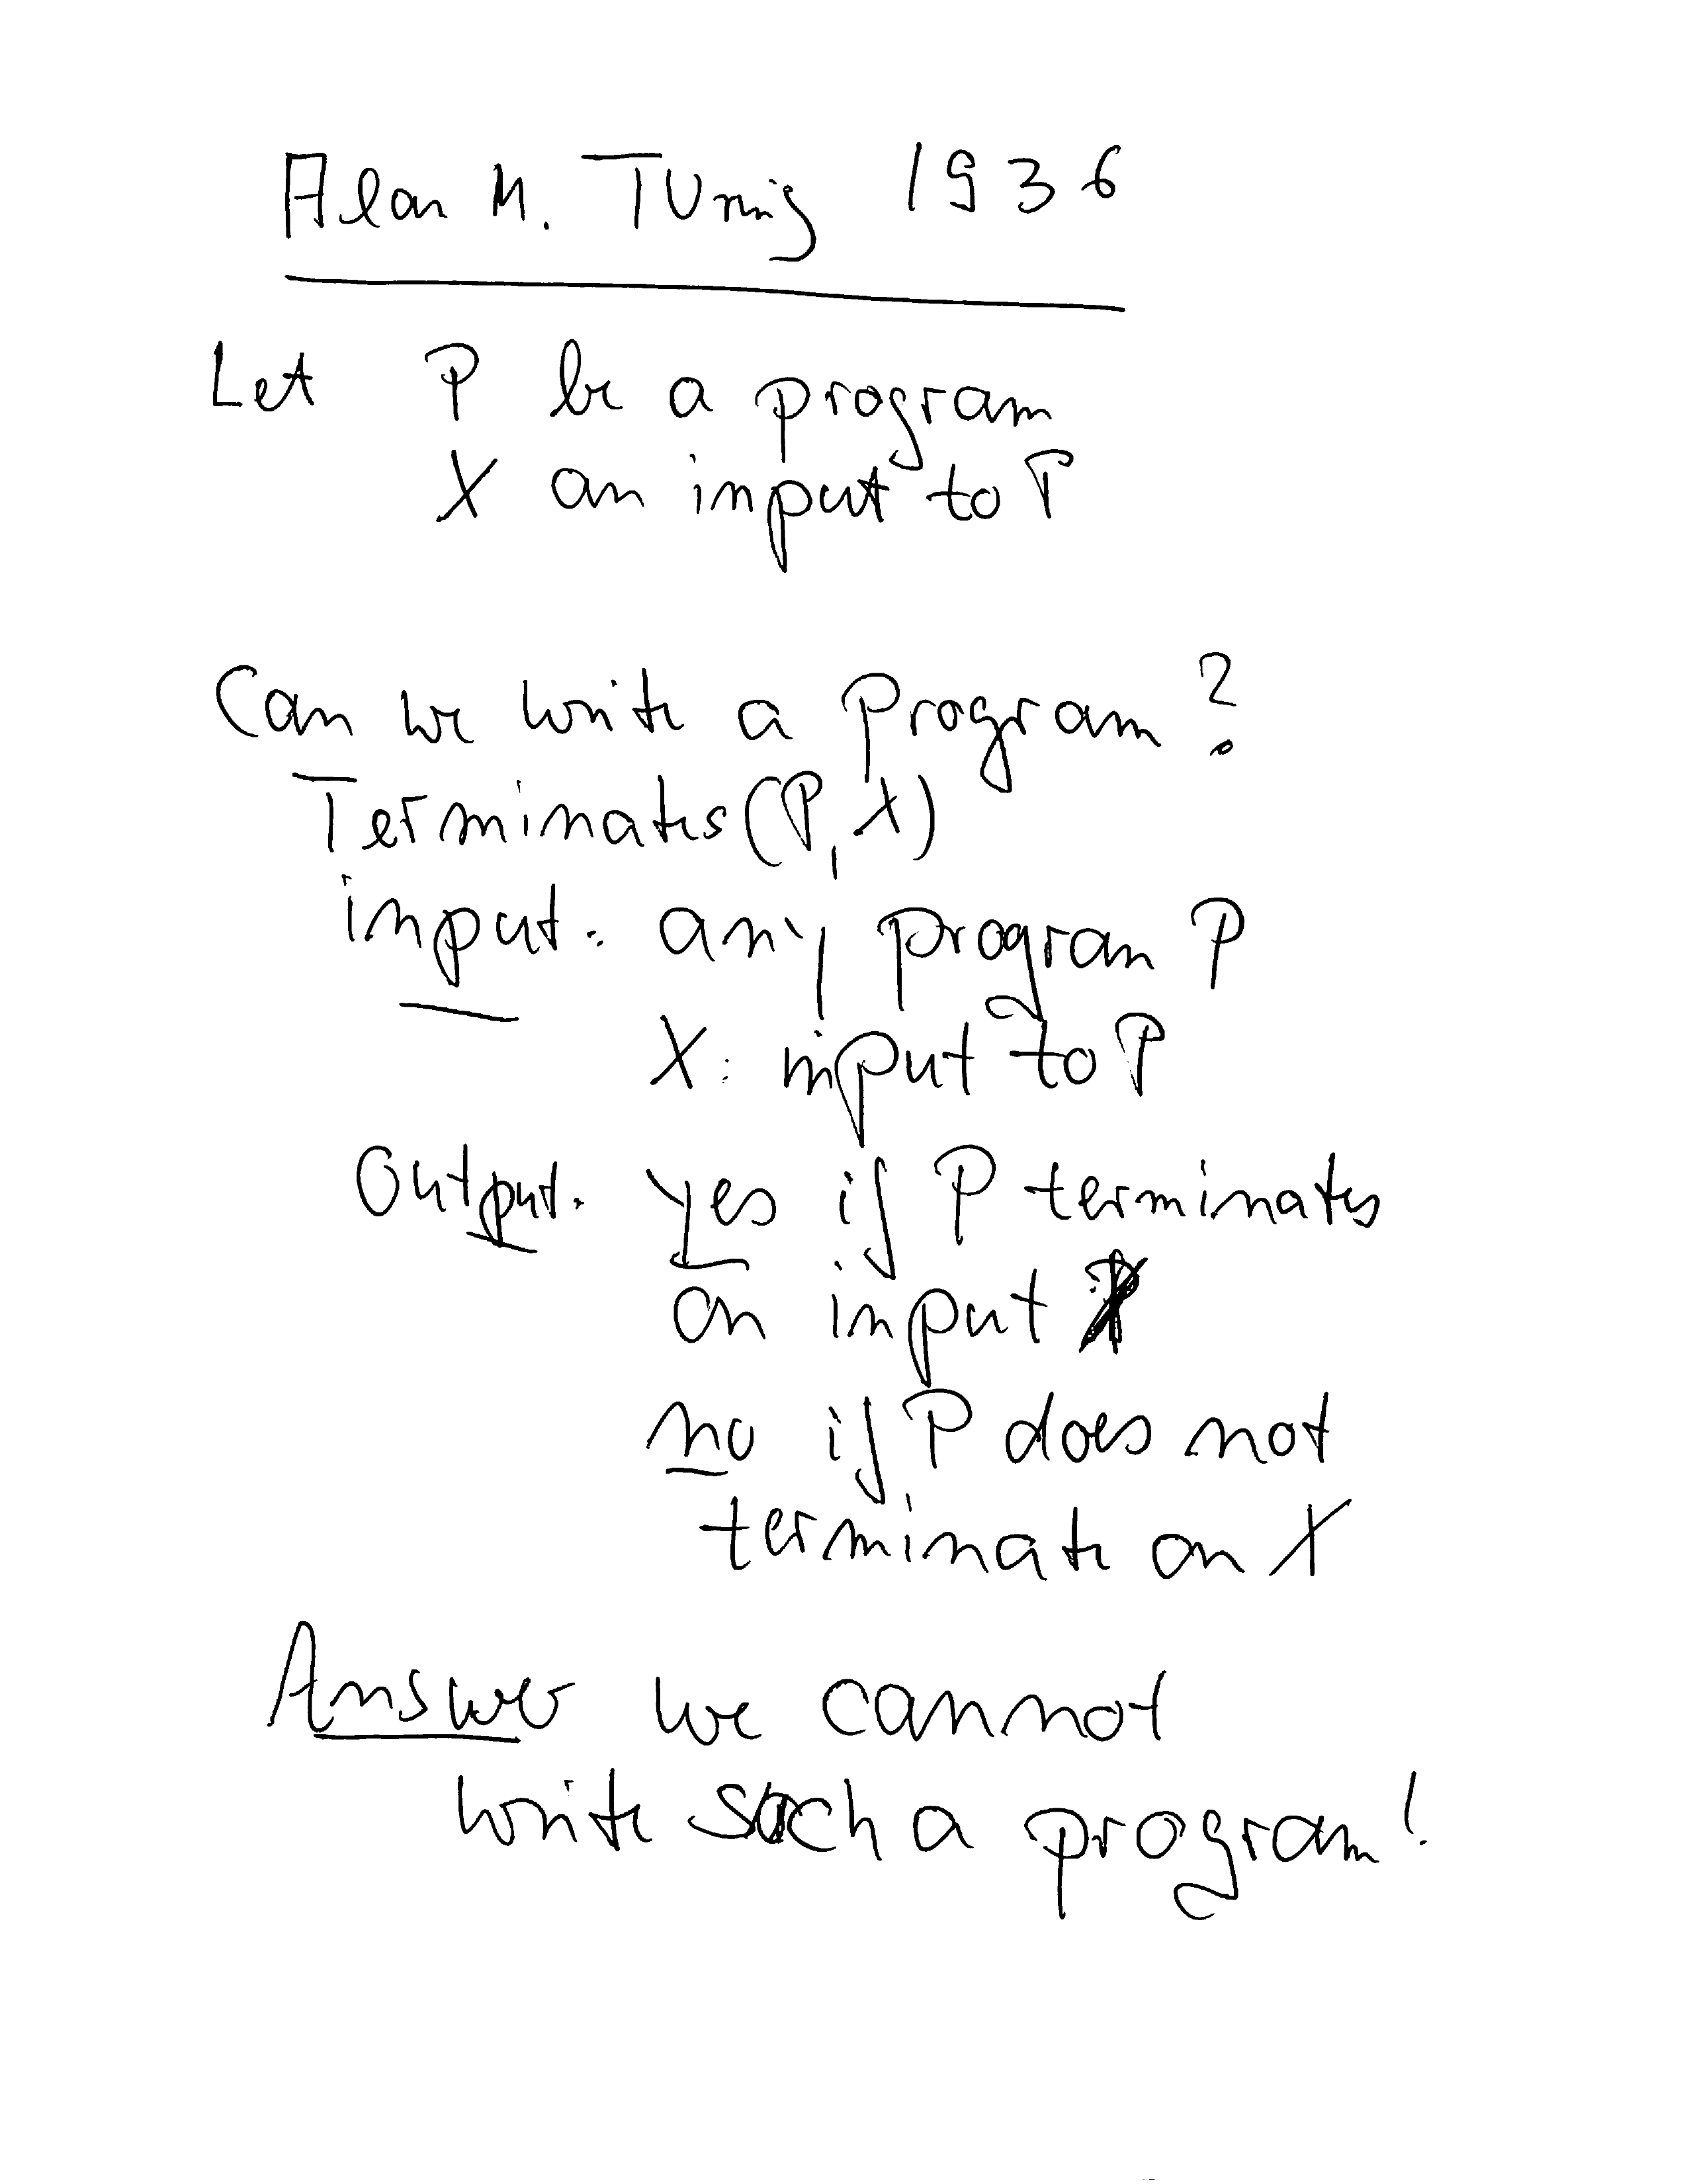 Alan M. Turing 1936
Let P be a program
X an input to P
Can we write a program?
Terminates(P, X)
input: any program P
X: input to P
Output: yes if P terminates
on input X
no if P does not
terminate on X
Answer we cannot
write such a program!